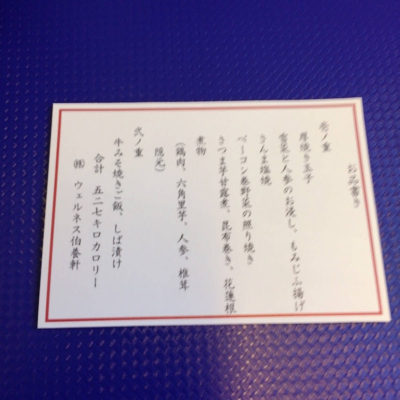 お品書き
壱ノ重
厚焼き玉子
青菜と人参のお浸し、もみじふ揚げ
さんま塩焼
ベーコン巻野菜の照り焼き
さつま芋甘露煮、昆布巻き、花蓮根
煮物
(鶏肉、六角里芋、人参、椎茸
隠元)
弐ノ重
牛みそ焼きご飯、しば漬け
合計 五二七キロカロリー
㈱ ウェルネス伯養軒